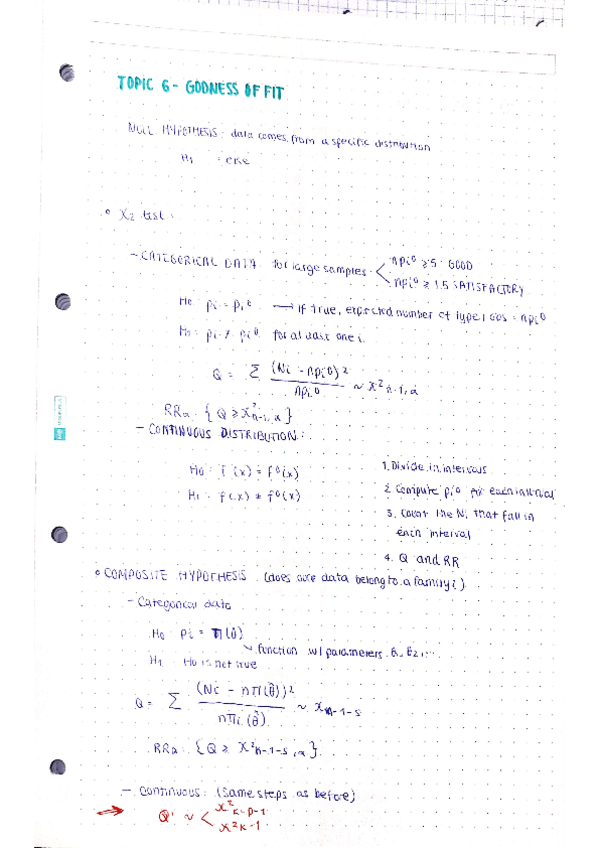 TOPIC 6 - GODNESS OF FIT
NULL HYPOTHESIS: data comes from a specific distribution
H₁ : else
• X₂ test:
- CATEGORICAL DATA for large samples < npi⁰ ≥ 5 GOOD
npi⁰ ≥ 1.5 SATISFACTORY
H₀: pi = pi⁰ → if true, expected number of type i obs = npi⁰
H₁: pi ≠ pi⁰ for at least one i.
Q = Σ (Ni - npi⁰)² / npi⁰ ~ X²k-1,α
RRα: { Q ≥ X²k-1,α }
- CONTINUOUS DISTRIBUTION:
H₀: f(x) = f⁰(x)
H₁: f(x) ≠ f⁰(x)
1. Divide in intervals
2. Compute pi⁰ for each interval
3. Count the Ni that fall in
each interval
4. Q and RR
• COMPOSITE HYPOTHESIS (does our data belong to a family?)
- Categorical data
H₀ pi = π(θ)
function w/ parameters θ₁, θ₂, ...
H₁ H₀ is not true
Q = Σ (Ni - nπi(θ̂))² / nπi(θ̂) ~ Xk-1-s
RRα: { Q ≥ X²k-1-s,α }
- Continuous: (same steps as before)
→ Q' ~ < X²k-p-1
X²k-1